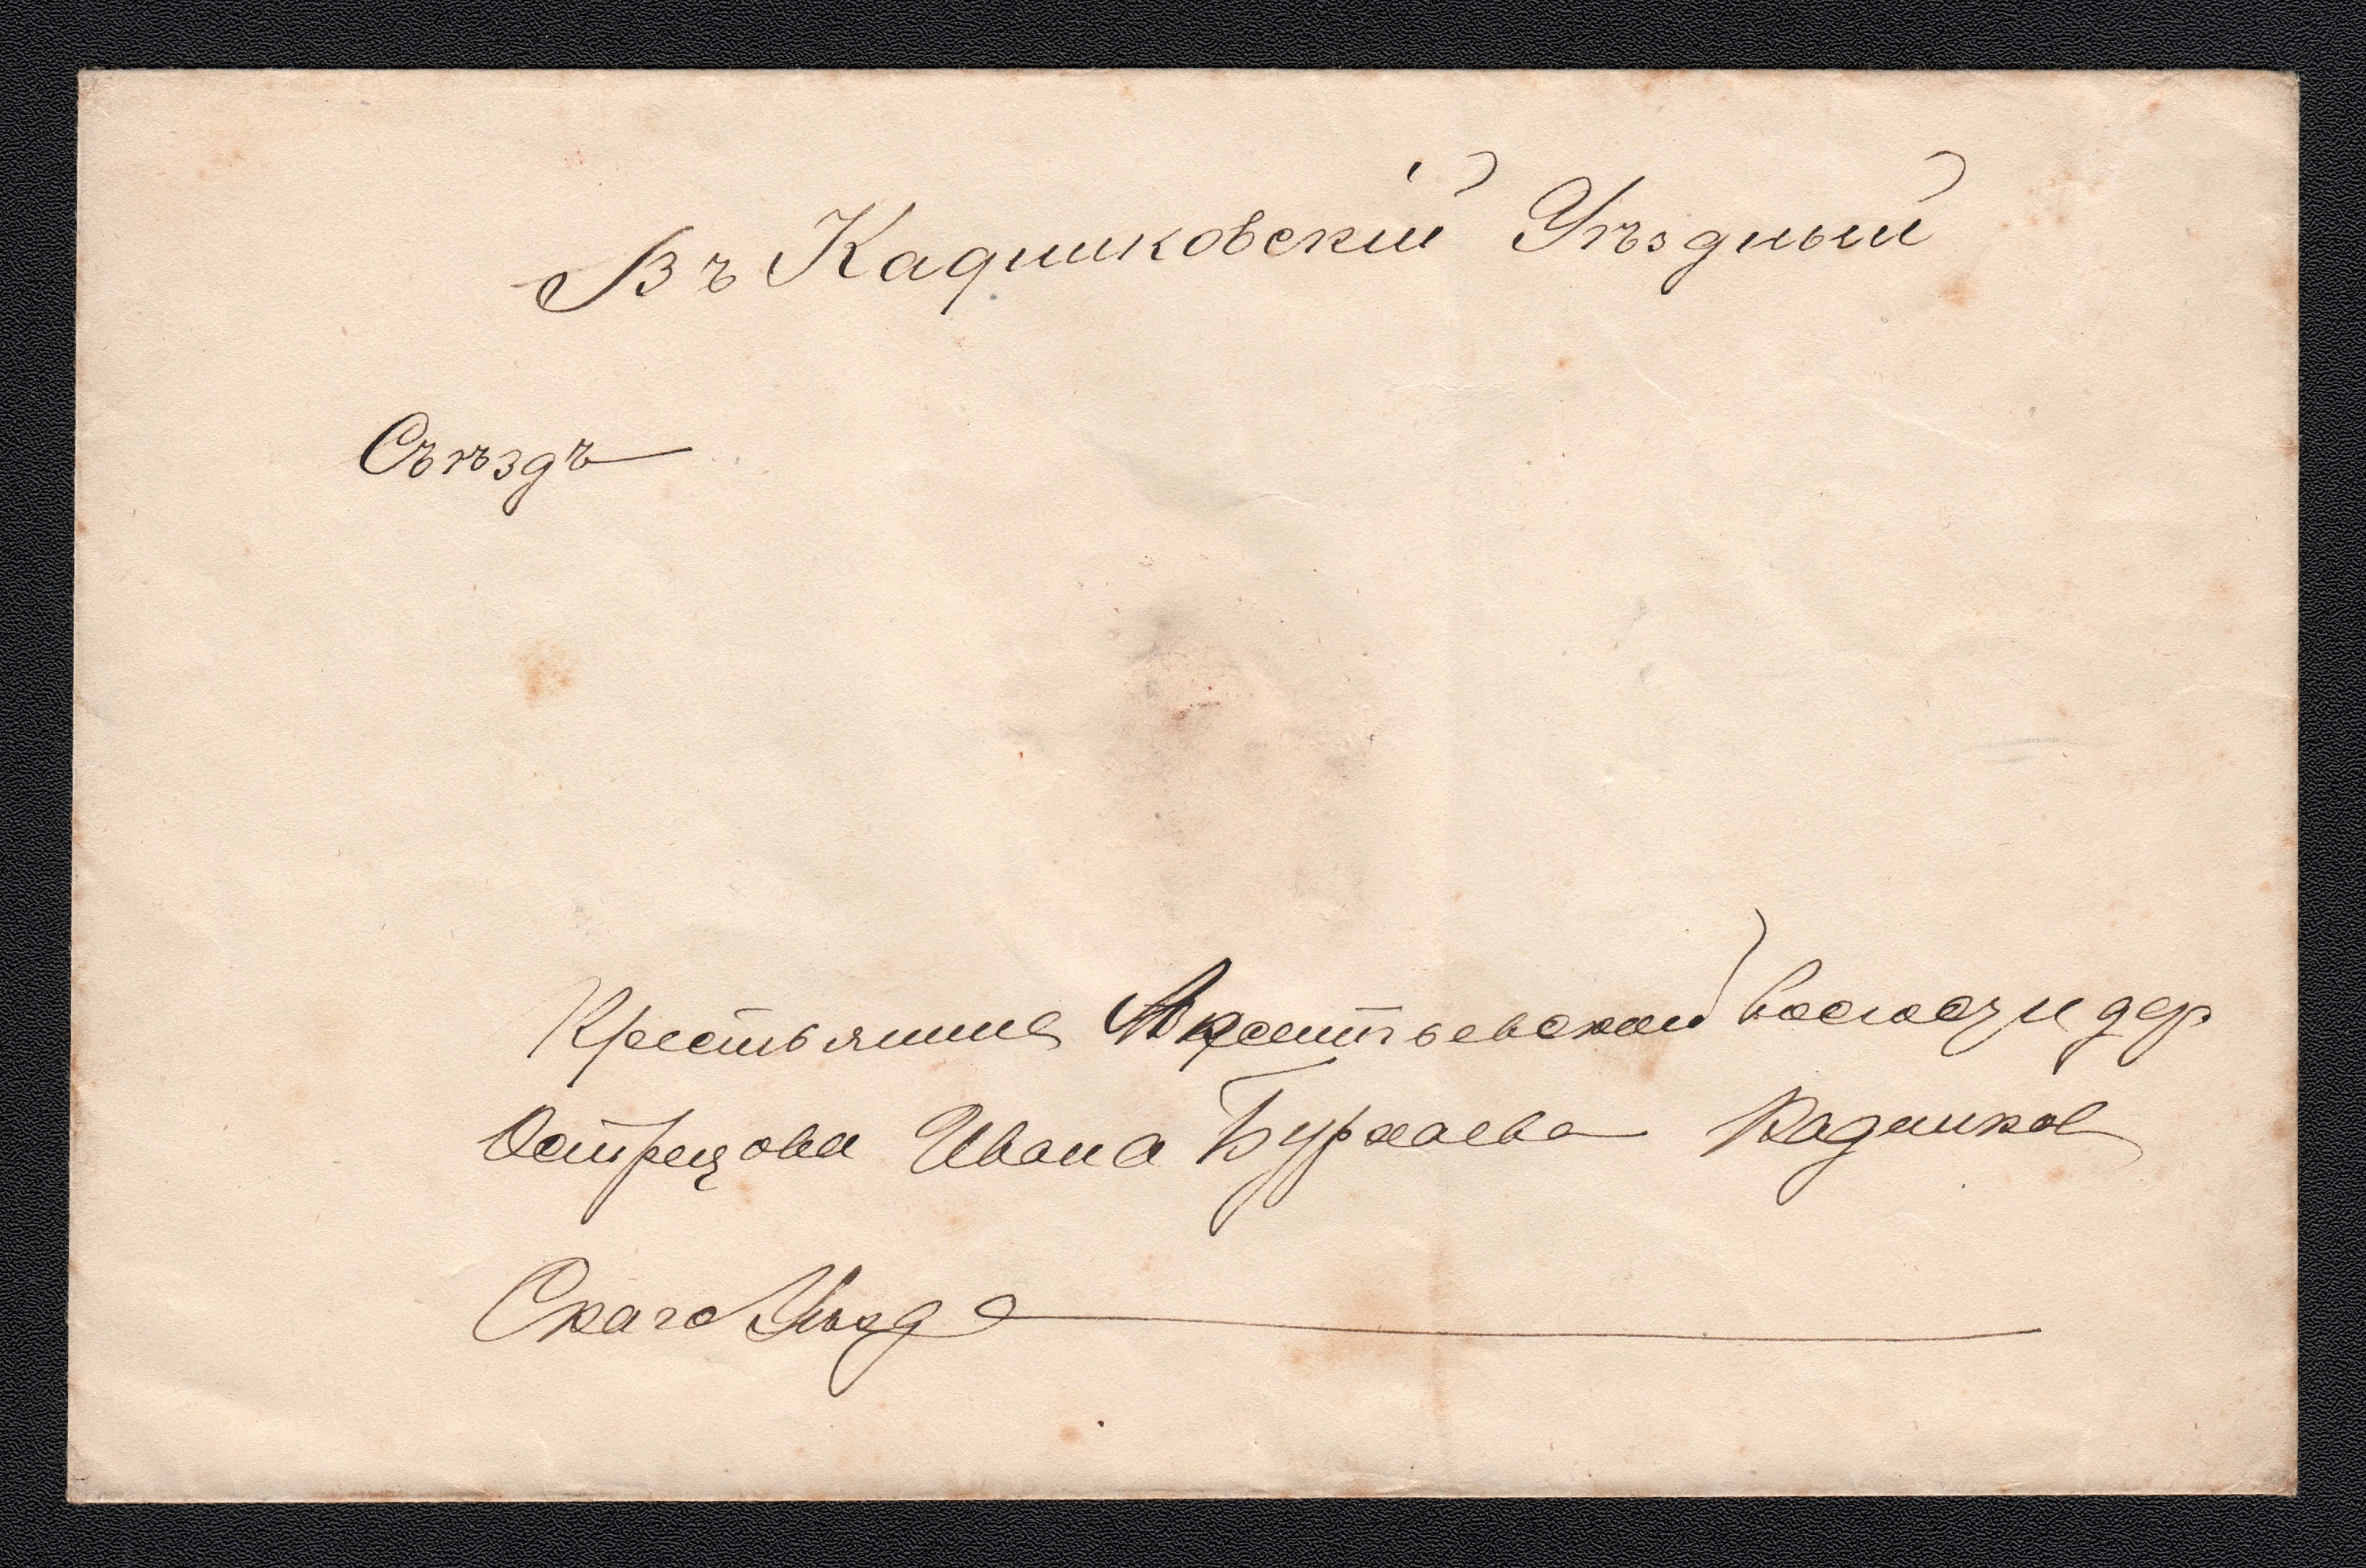 Въ Кадниковскій Уѣздный
Съѣздъ
Крестьянина Авксентьевской волости дер
Острецова Ивана Бурлаева Кадников
Скаго Уѣзда